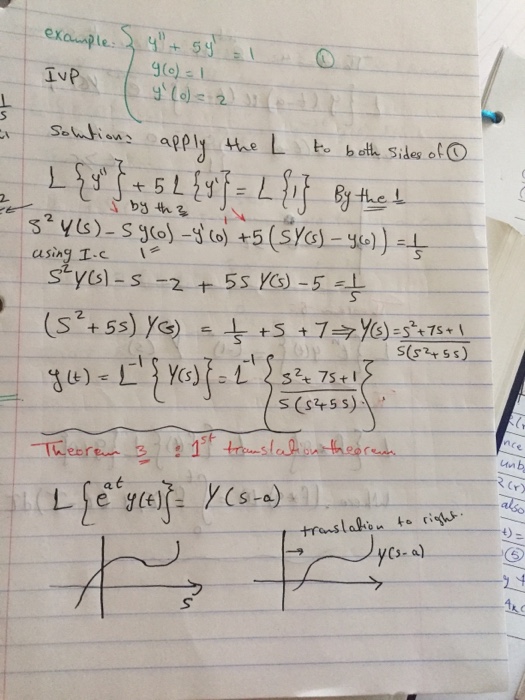 example: { y'' + 5y' = 1 ①
IVP y(0) = 1
y'(0) = 2
Solution: apply the L to both sides of ①
L{y''} + 5L{y'} = L{1} By the 1
by th 2
s²Y(s) - Sy(0) - y'(0) + 5(SY(s) - y(0)) = 1/s
using I.C 1=
s²Y(s) - s - 2 + 5s Y(s) - 5 = 1/s
(s² + 5s) Y(s) = 1/s + s + 7 ⇒ Y(s) = s² + 7s + 1 / s(s² + 5s)
y(t) = L⁻¹{Y(s)} = L⁻¹{s² + 7s + 1 / s(s² + 5s)}
Theorem 3 : 1st translation theorem
L{e^{at} y(t)} = Y(s-a)
translation to right.
y(s-a)
s
nce
unb
also
t) =
⑤